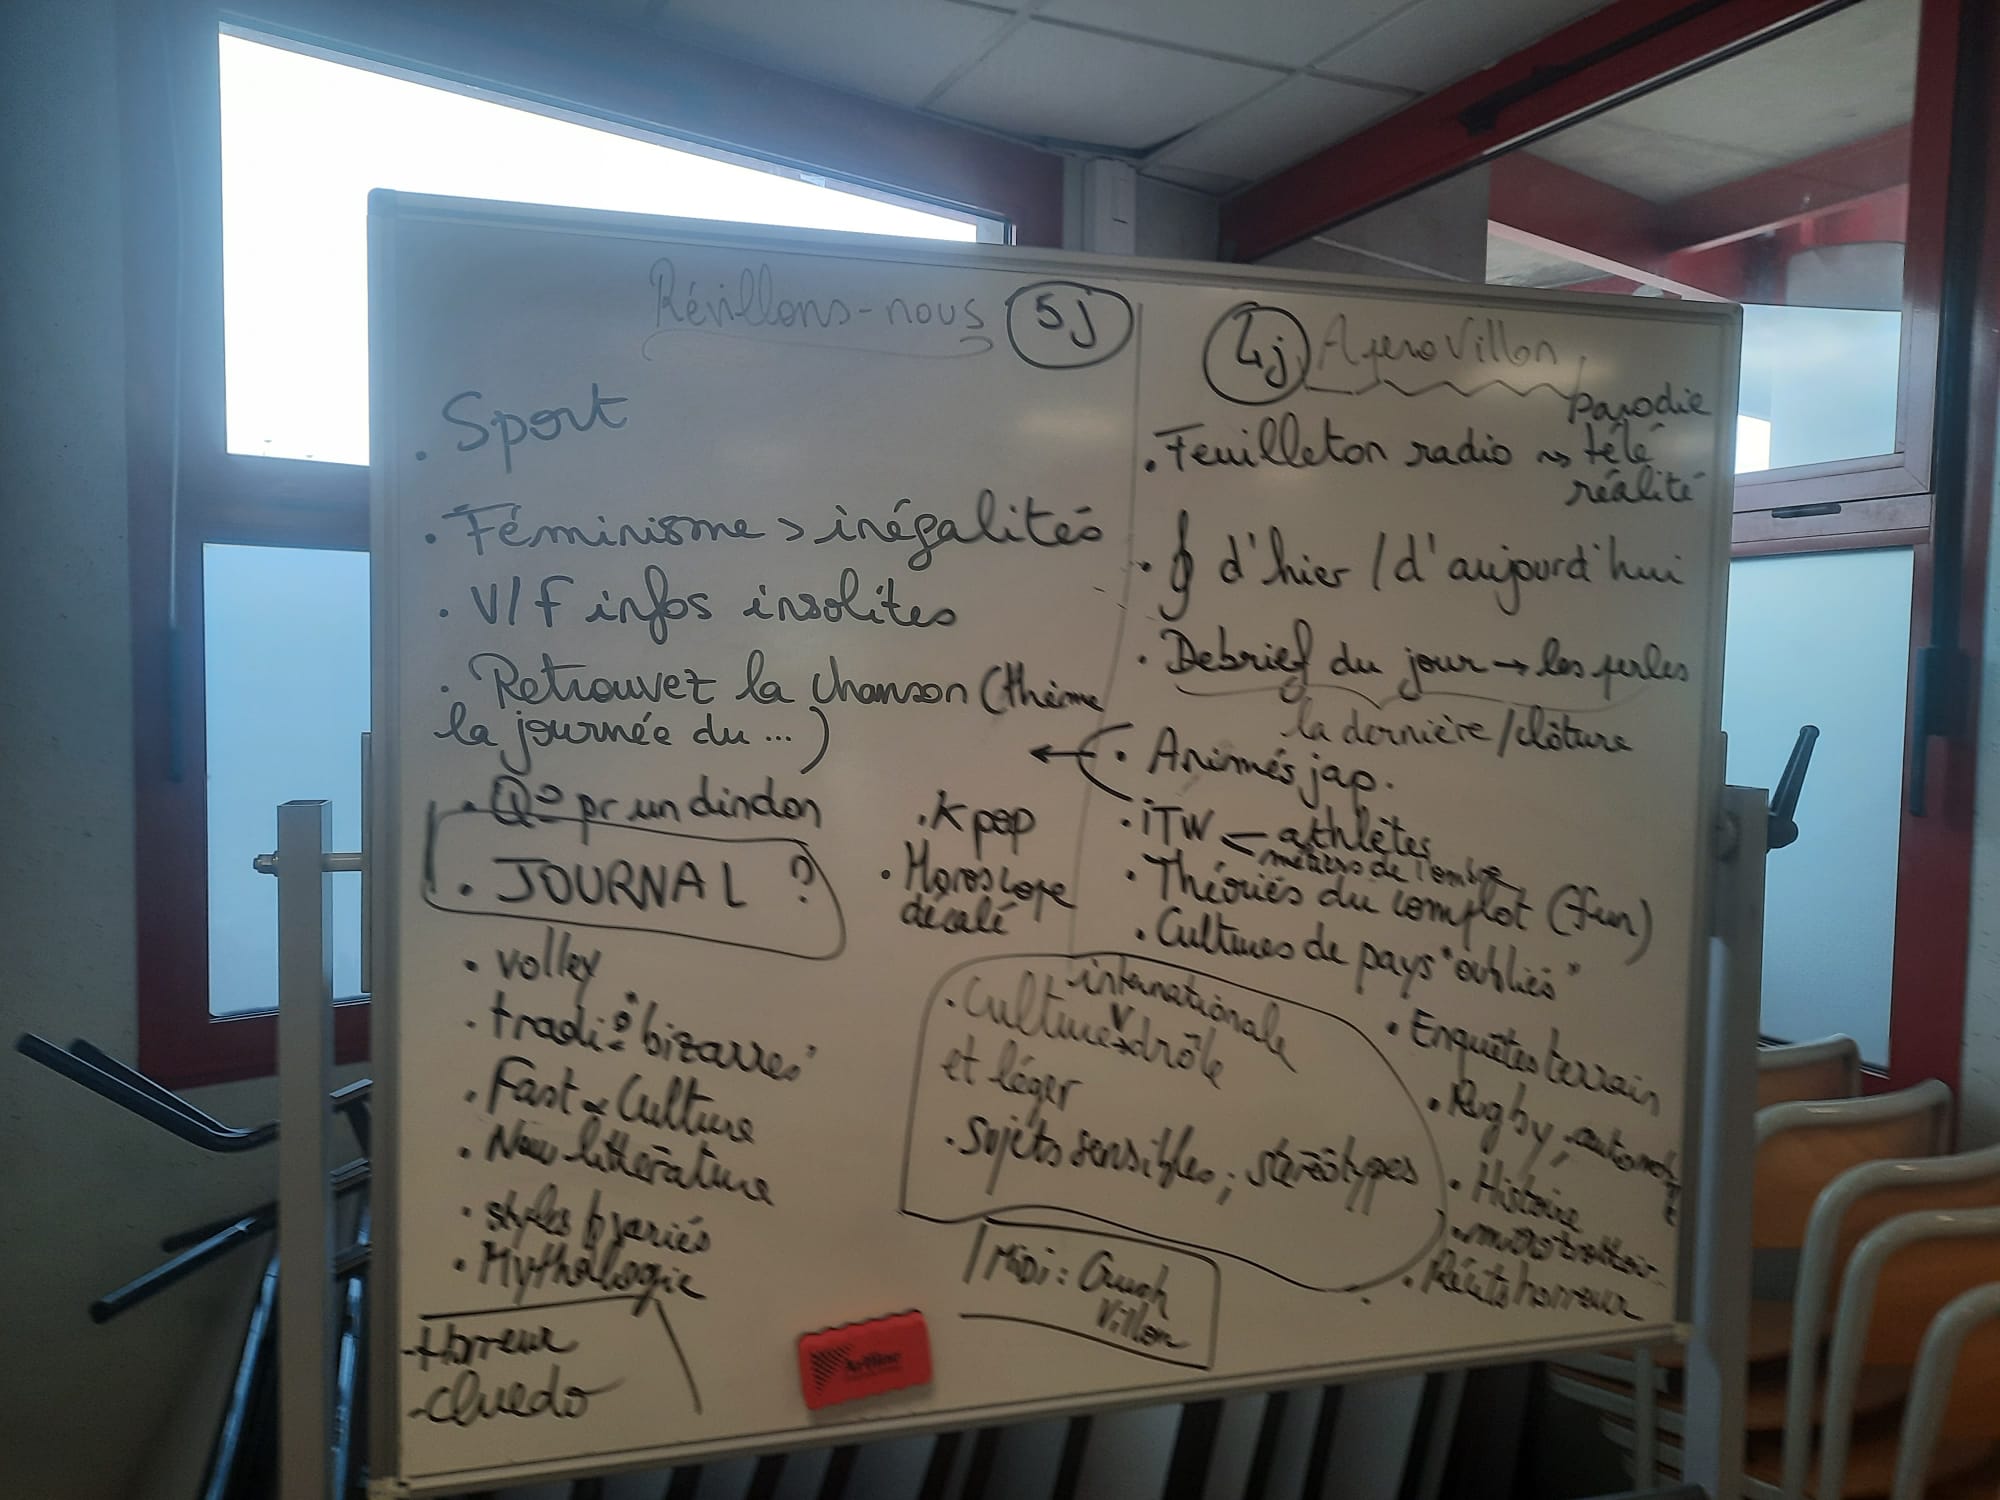 Révillons-nous 5J
. Sport
. Féminisme > inégalités
. V/F infos insolites
. Retrouvez la chanson (thème
la journée du ...)
. Q° pr un dindon
. JOURNAL ?
. volley
. tradi° "bizarres"
. Fast Culture
. littérature
. styles variés
. Mythologie
- Horreur
- Cluedo
. K pop
. Horoscope
décalé
4j Apero Villon
. Feuilleton radio ~> parodie
télé
réalité
. d'hier / d'aujourd'hui
. Debrief du jour → les perles
la dernière/clôture
← . Animés jap.
. iTW < athlètes
métiers de l'ombre
. Théories du complot (fun)
. Cultures de pays "oubliés"
internationale
. Culture drôle
et léger
. Sujets sensibles ; stéréotypes
. Enquêtes terrain
. Rugby,
. Histoire
. micro trottoir
. Récits horreur
Midi : Crush
Villon
Artline